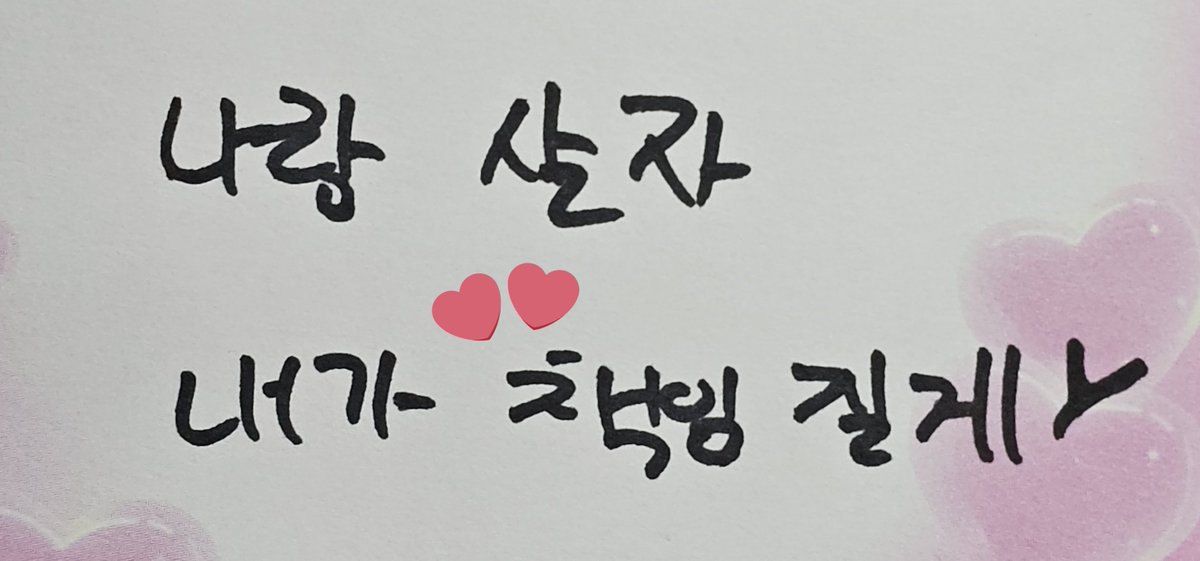 나랑 살자
내가 책임 질게